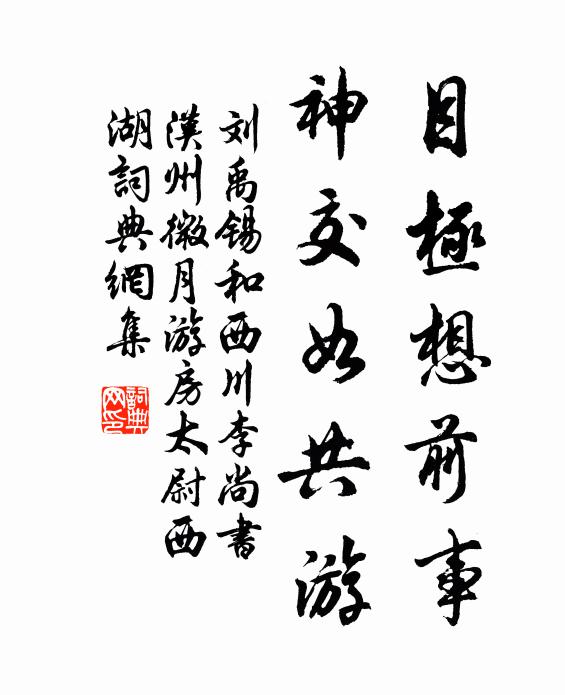 目極想前事
神交如共游
刘禹锡和西川李尚書
漢州微月游房太尉西
湖詞典網集
詞典
网印